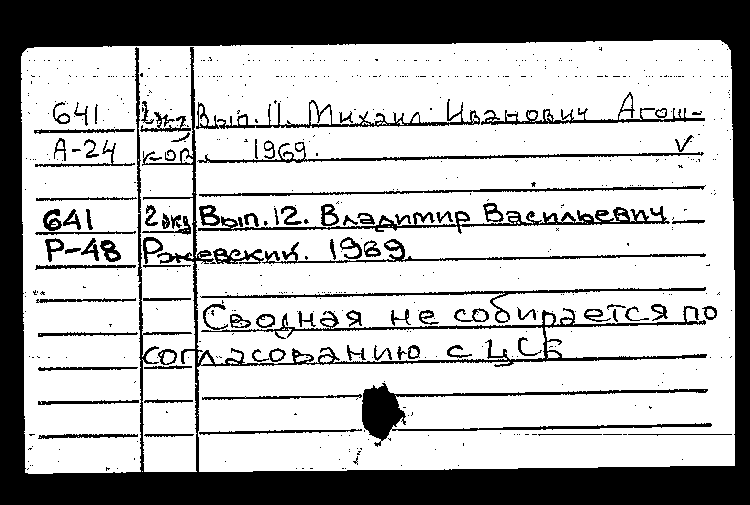 641 2 экз Вып. 11. Михаил Иванович Агош-
А-24 ков. 1969. V
641 2 экз Вып. 12. Владимир Васильевич
Р-48 Ржевский. 1969.
Сводная не собирается по
согласованию с ЦСБ